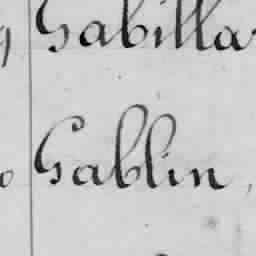 Gabilla
Gablin,